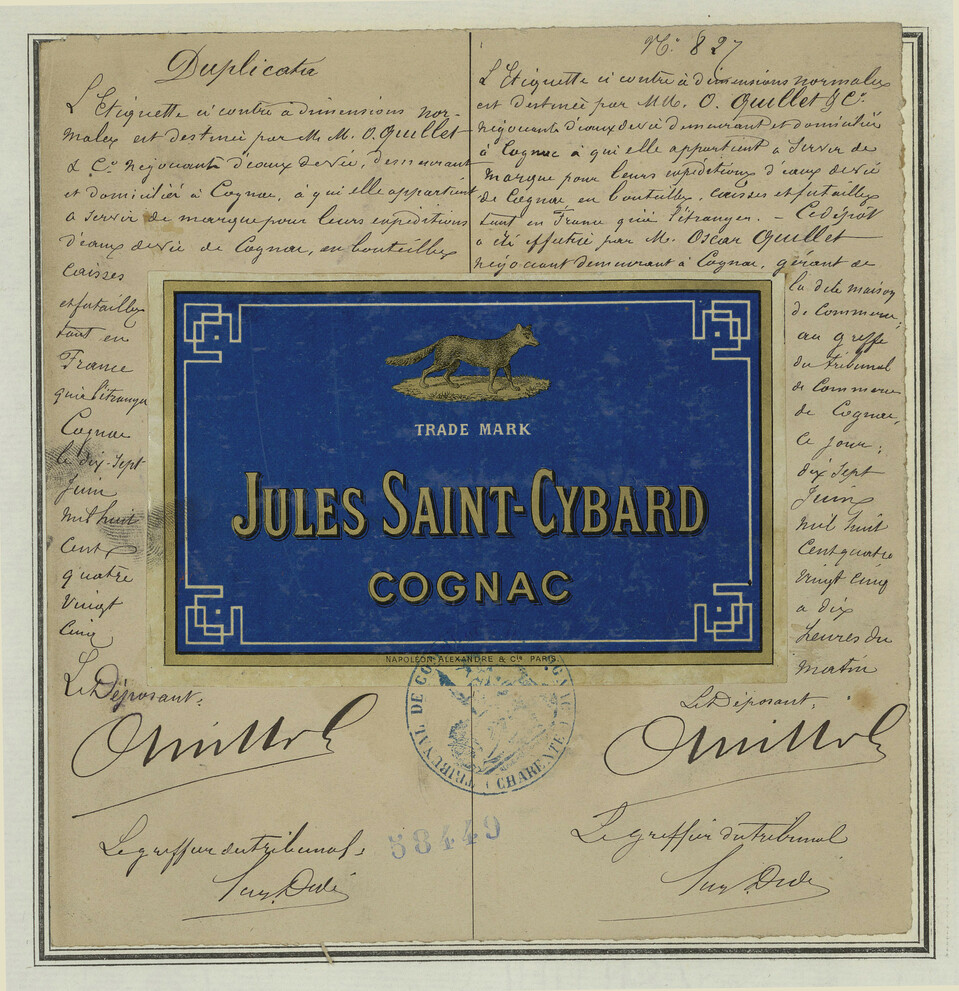 Duplicata
L'Etiquette ci contre à dimensions nor-
males est destinée par M. M. O. Quillet
& Cie négociants d'eaux de vie, demeurant
et domiciliés à Cognac, à qui elle appartient
a servir de marque pour leurs expéditions
d'eaux de vie de Cognac, en bouteilles
caisses
et futailles
tant en
France
qu'à l'étranger
Cognac
le dix-sept
Juin
mil huit
cent
quatre
vingt
cinq
Le Déposant,
Le greffier du tribunal,
No 827
L'Etiquette ci contre à dimensions normales
est destinée par MM. O. Quillet & Cie
négociants d'eaux de vie demeurant et domiciliés
à Cognac à qui elle appartient a servir de
marque pour leurs expéditions d'eaux de vie
de Cognac en bouteilles, caisses et futailles
tant en France qu'à l'étranger. – Ce dépôt
a été effectué par M. Oscar Quillet
négociant demeurant à Cognac, gérant de
la dite maison
de Commerce,
au greffe
du tribunal
de Commerce
de Cognac,
ce jour,
dix sept
Juin
mil huit
cent quatre
vingt cinq
a dix
heures du
matin
Le Déposant,
Le greffier du tribunal
TRADE MARK
JULES SAINT-CYBARD
COGNAC
NAPOLÉON-ALEXANDRE & Cie PARIS.
TRIBUNAL DE CO GNAC (CHARENTE)
58449